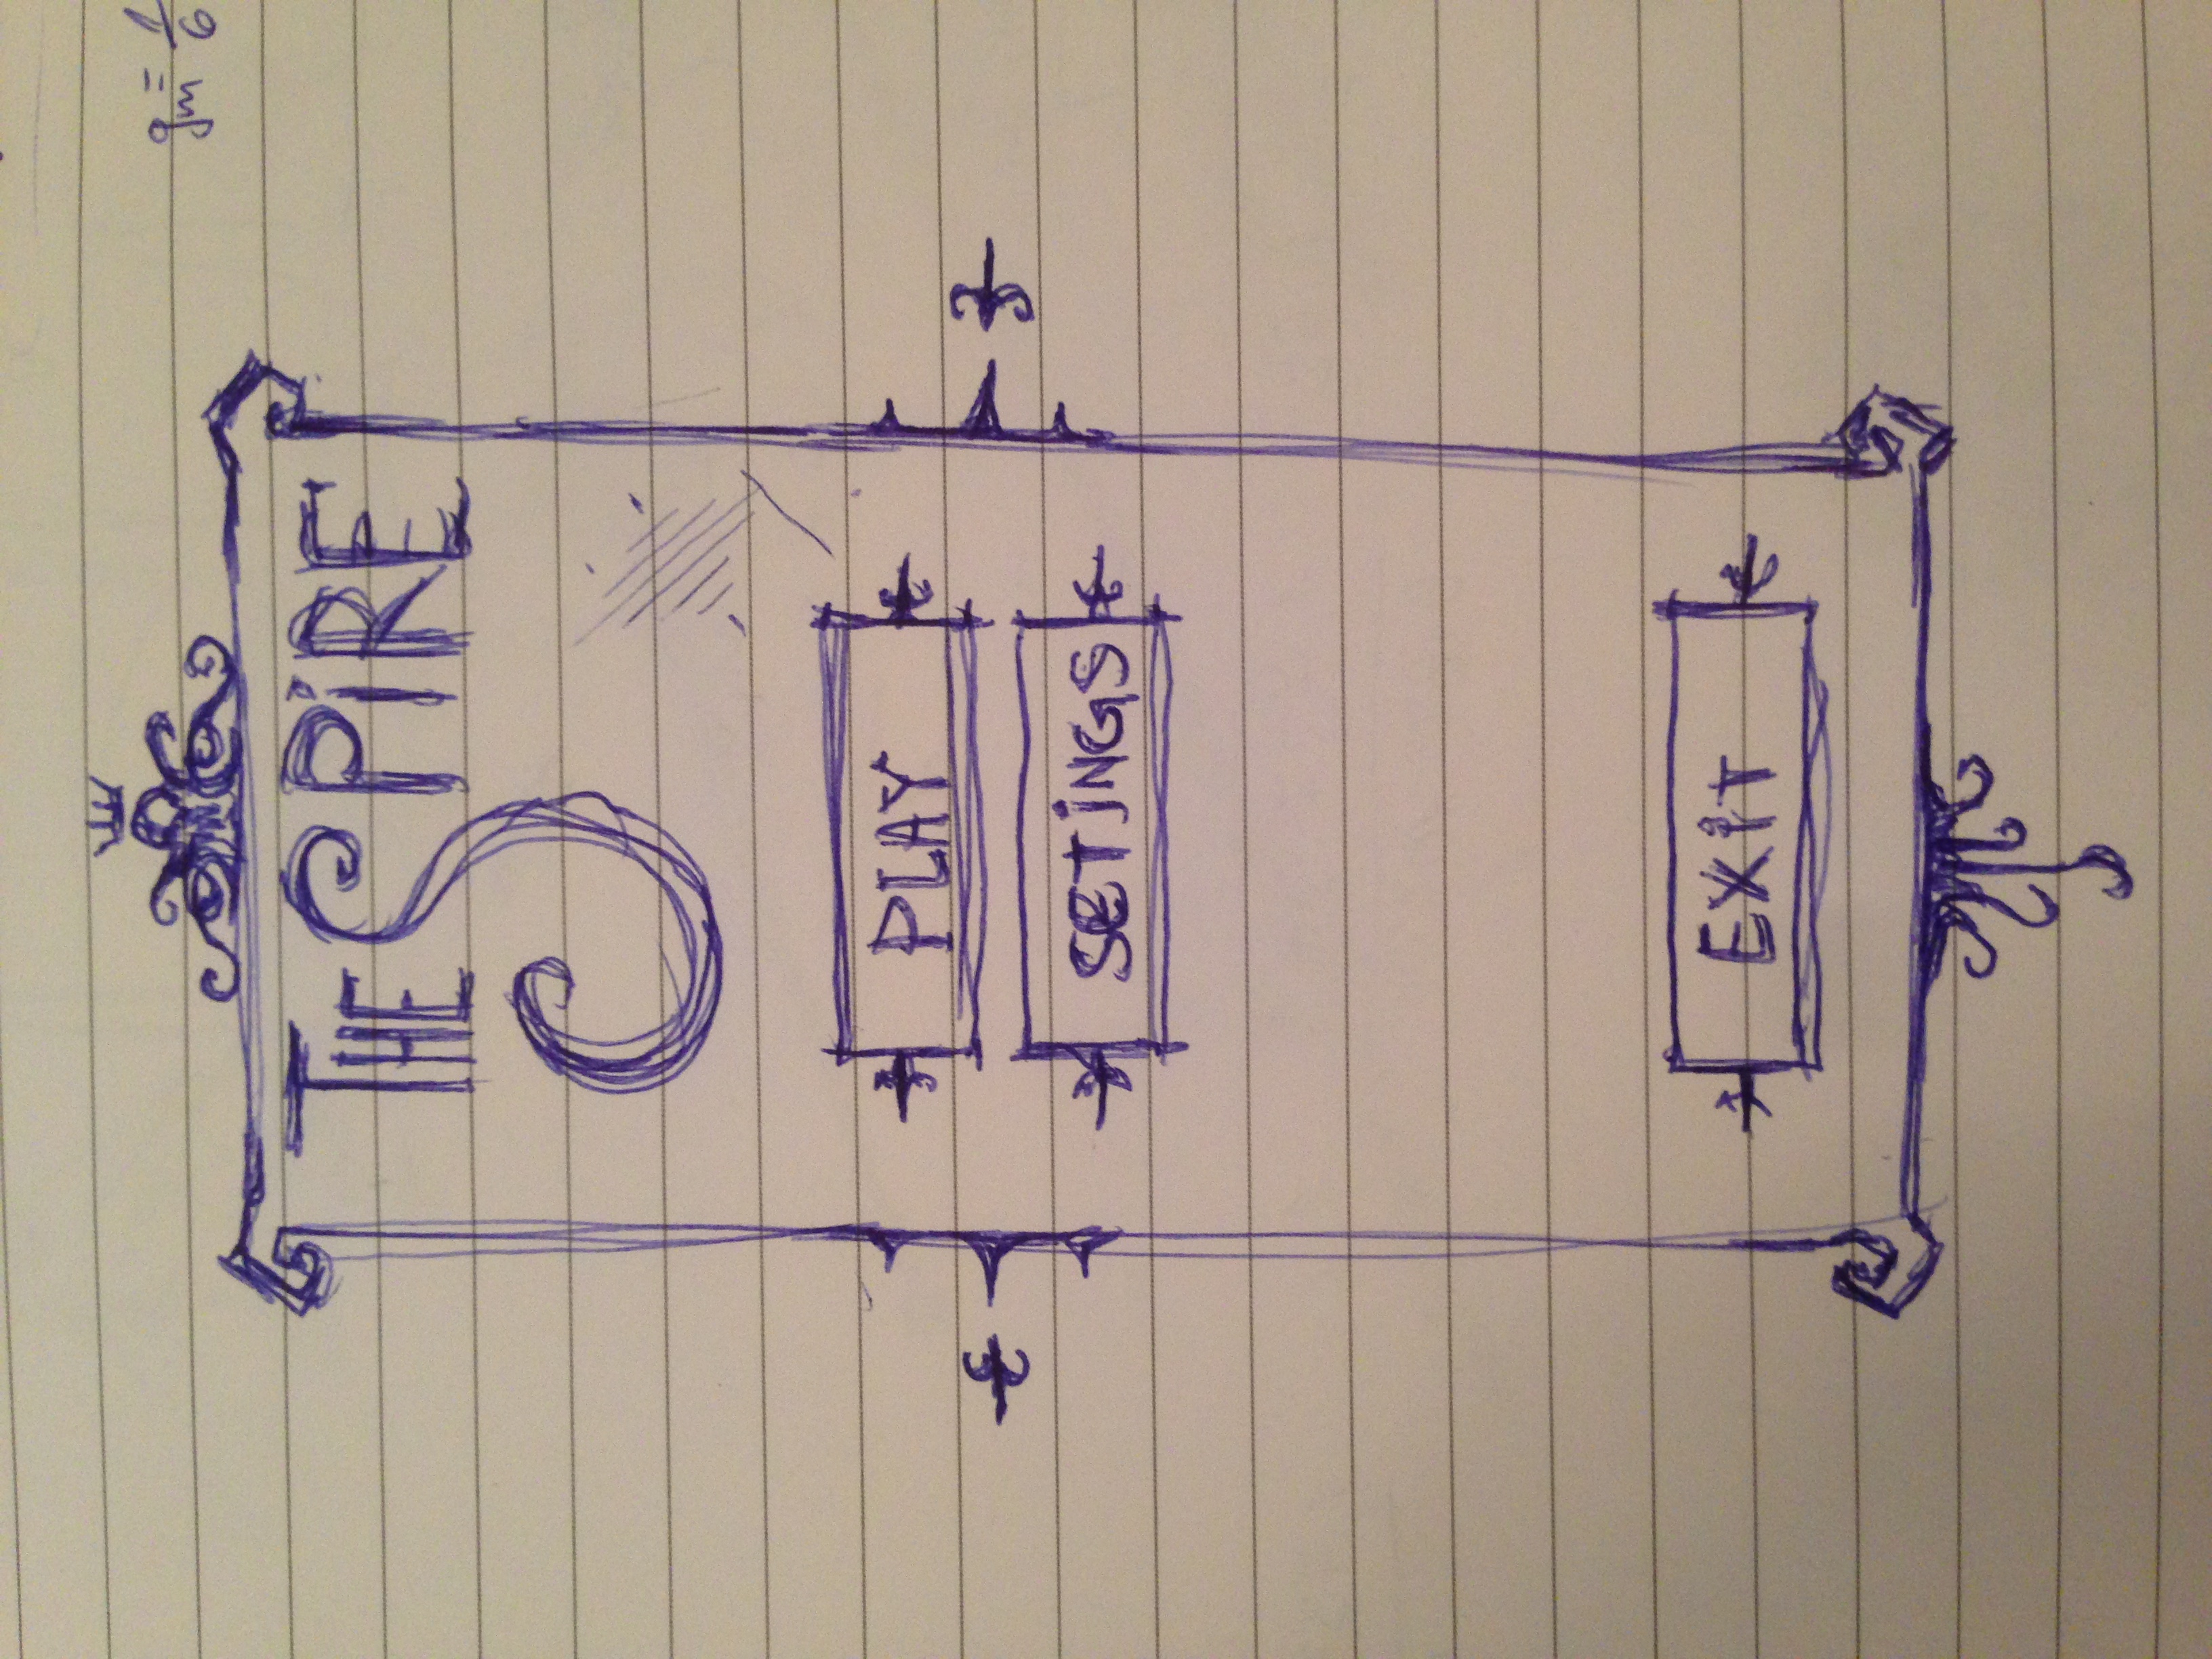 gm = 1/6
THE SPiRE
PLAY
SETiNGS
EXiT